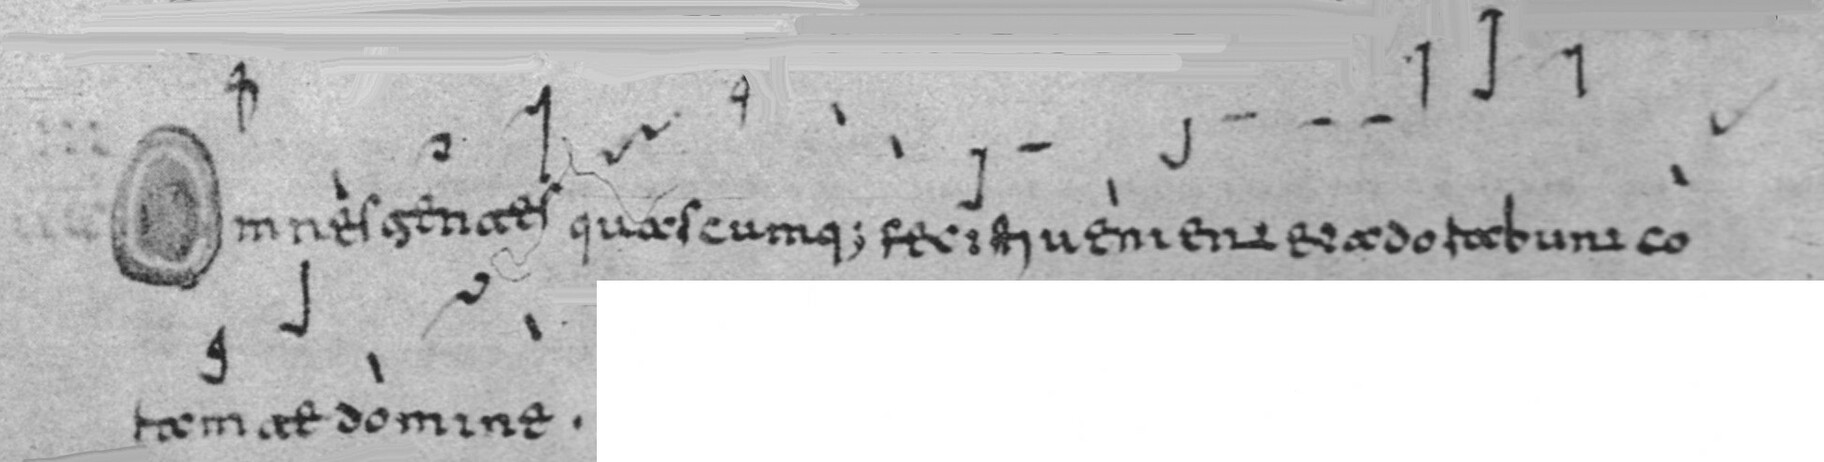 Omnes gentes quascumq; fecisti uenient et adorabunt co
ram te domine .